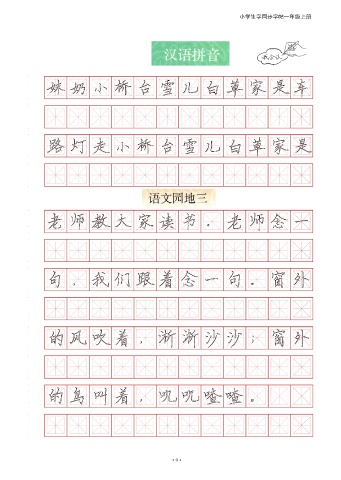 小学生字同步字帖一年级上册
汉语拼音
妹奶小桥台雪儿白草家是车
路灯走小桥台雪儿白草家是
语文园地三
老师教大家读书。老师念一
句，我们跟着念一句。窗外
的风吹着，淅淅沙沙；窗外
的鸟叫着，叽叽喳喳。